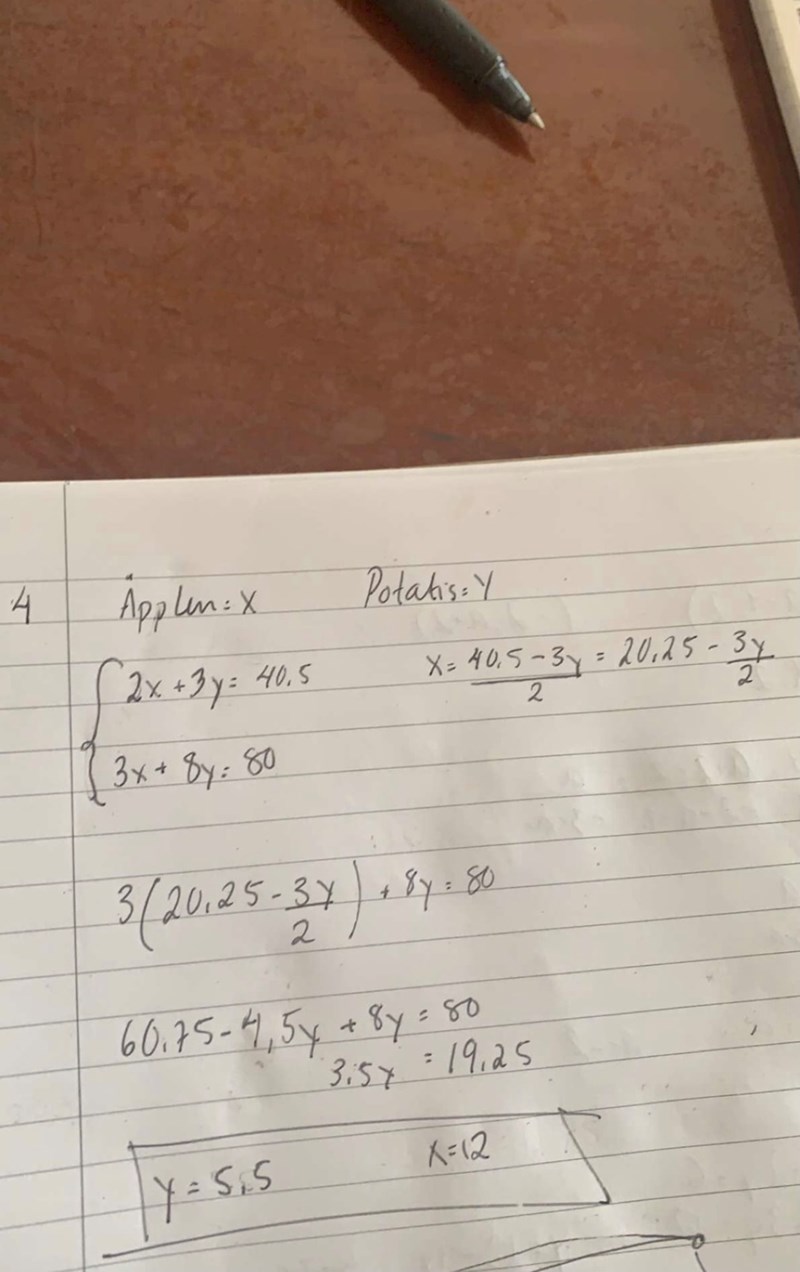 4 Äpplen = X Potatis = Y
2x + 3y = 40.5 x = (40.5 - 3y)/2 = 20.25 - 3y/2
3x + 8y = 80
3(20.25 - 3y/2) + 8y = 80
60.75 - 4,5y + 8y = 80
3.5y = 19.25
y = 5.5 x = 12